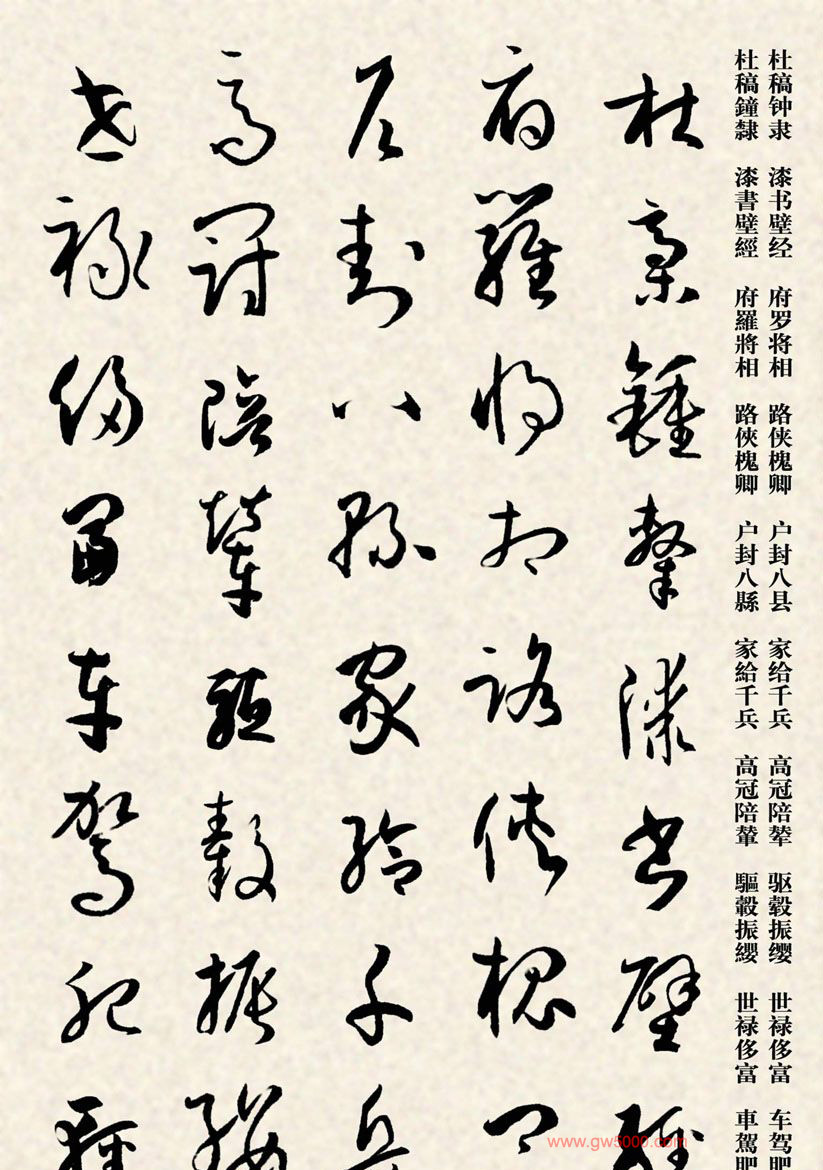 杜稿钟隶 漆书壁经 府罗将相 路侠槐卿 户封八县 家给千兵 高冠陪辇 驱毂振缨 世禄侈富 车驾肥
杜稿鐘隸 漆書壁經 府羅將相 路俠槐卿 户封八縣 家給千兵 高冠陪輦 驅轂振纓 世禄侈富 車駕肥
杜稿鍾隸漆書壁經
府羅將相路俠槐卿
户封八縣家給千兵
高冠陪輦驅轂振纓
世禄侈富車駕肥輕
www.gw5000.com